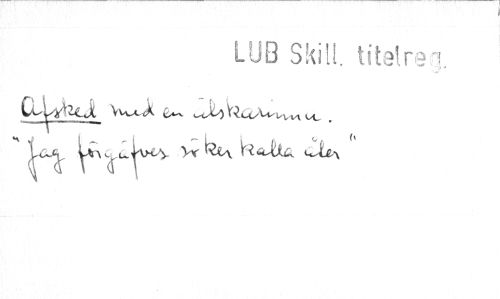 LUB Skill. titelreg.
Afsked med en älskarinna.
"Jag förgäfves söker kalla åter"